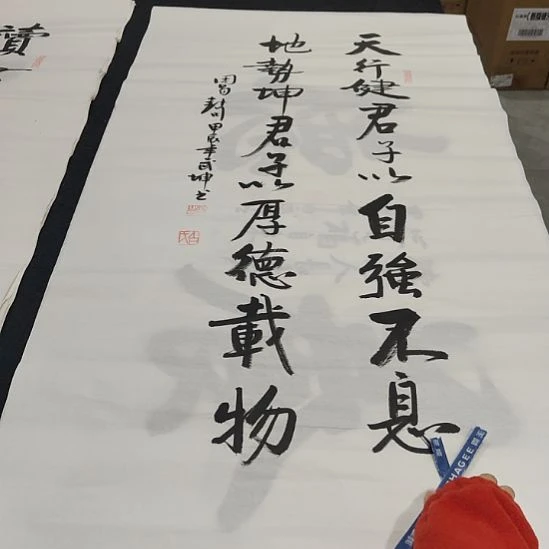 天行健君子以自強不息
地勢坤君子以厚德載物
甲辰年
CHAGEE